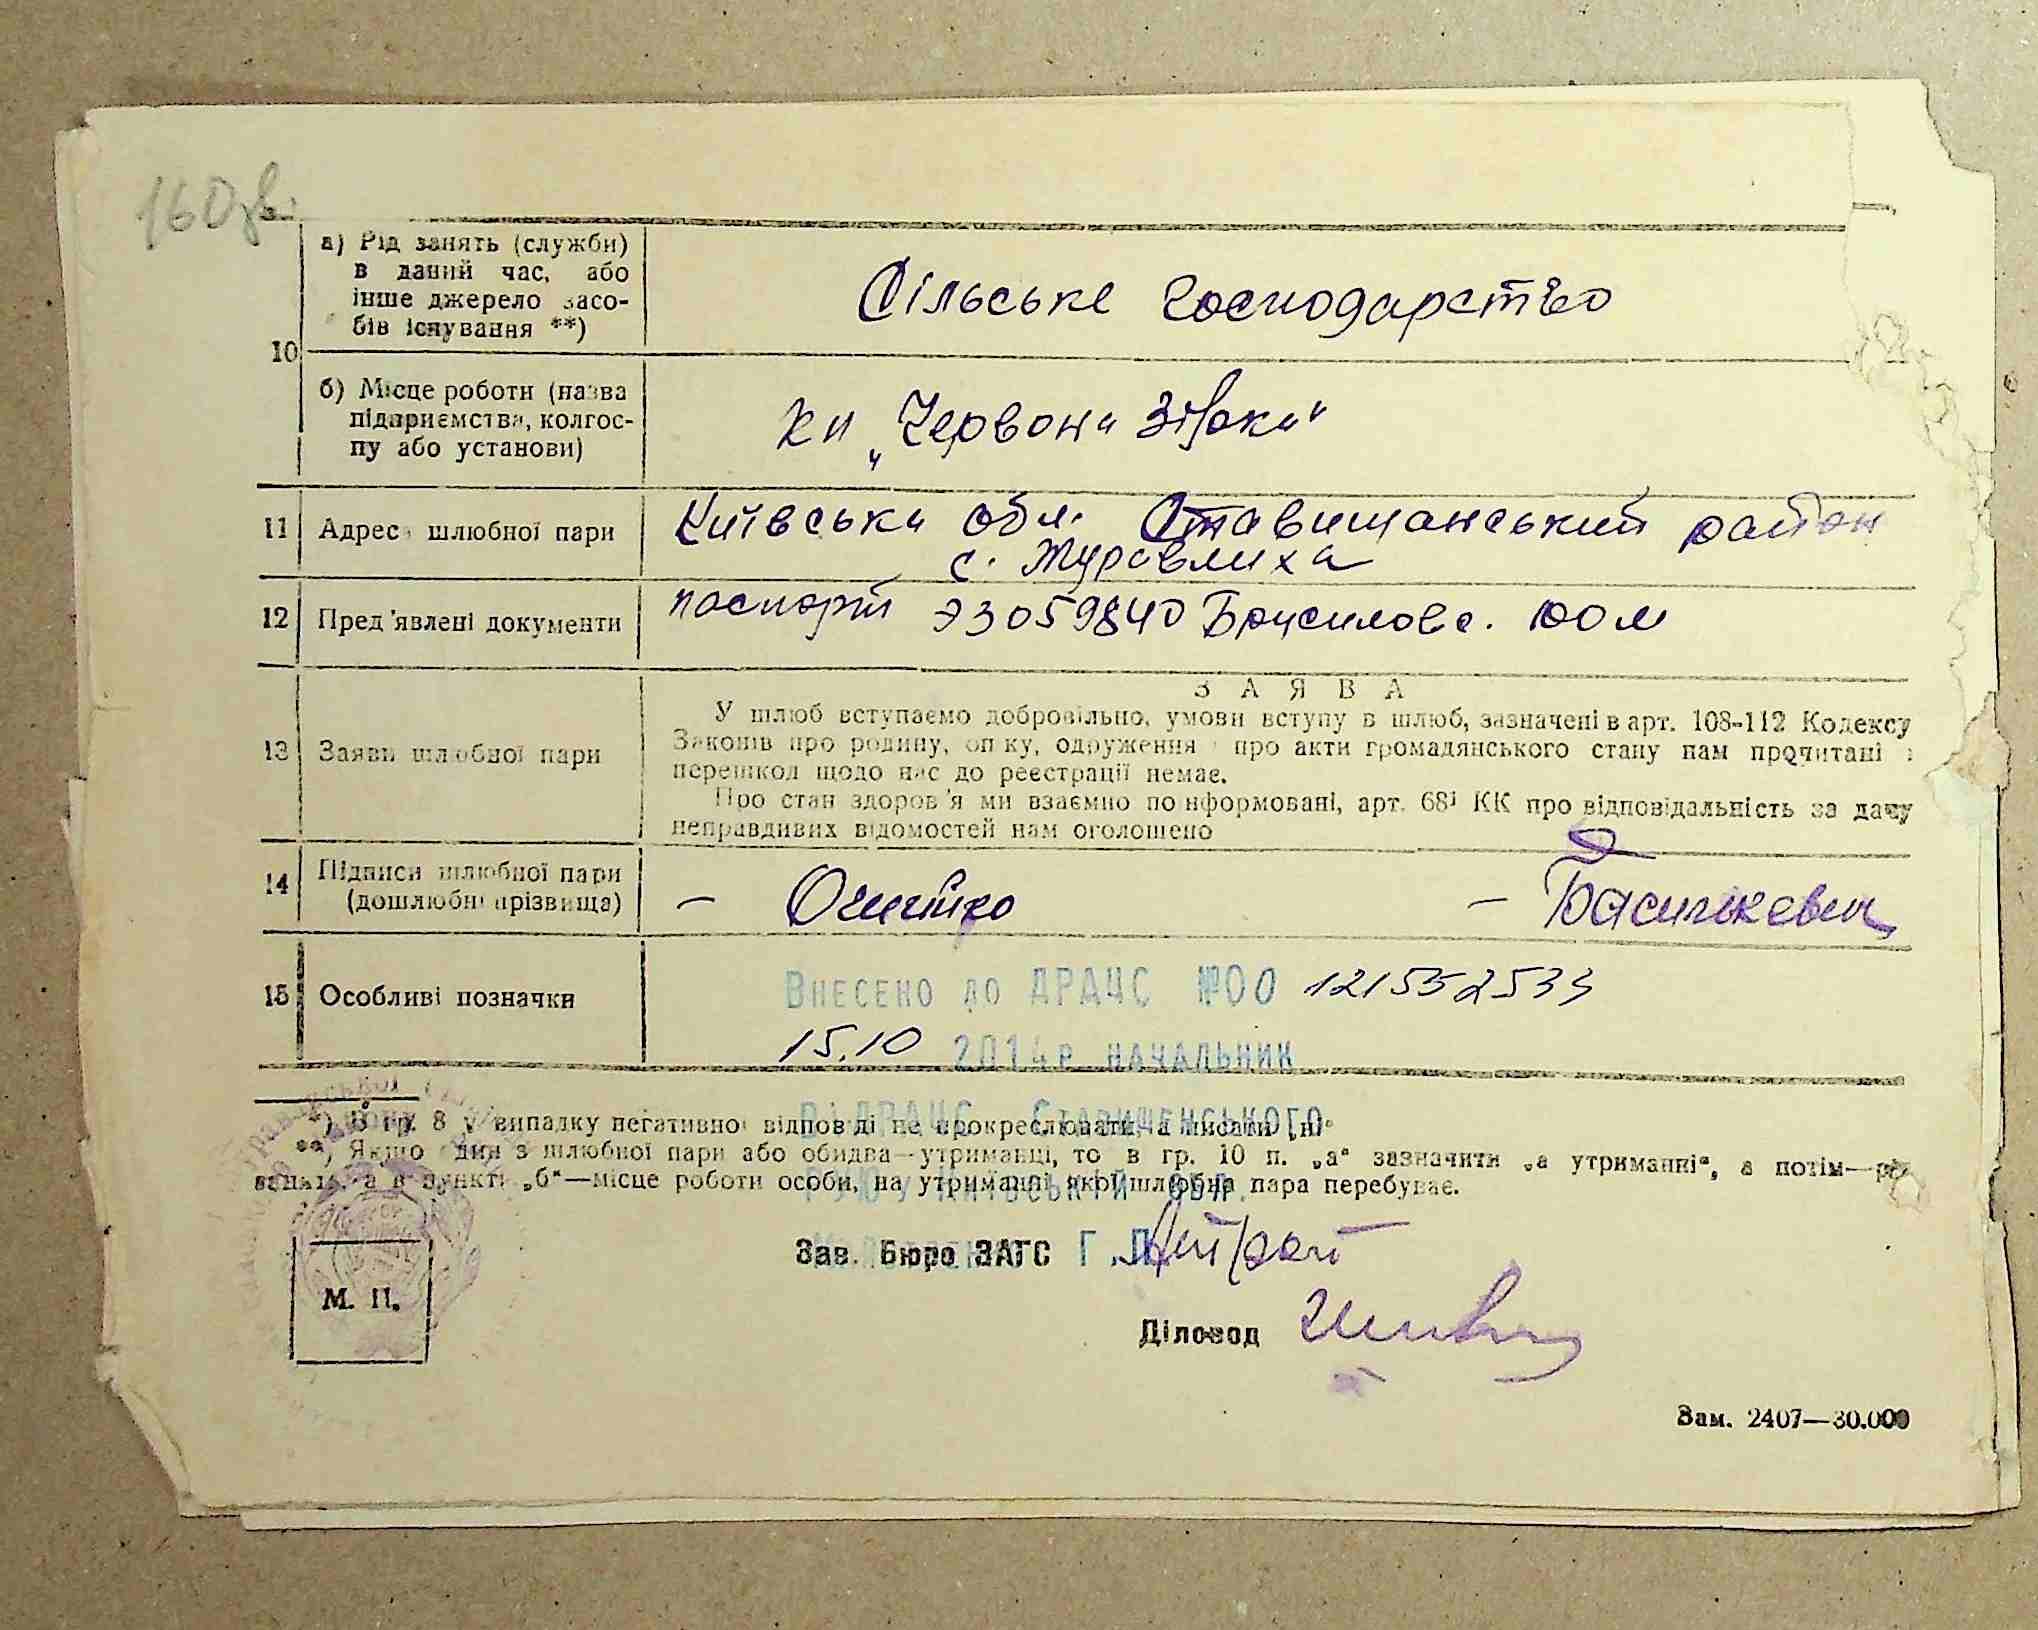 160зв.
10
а) Рід занять (служби)
в даний час, або
інше джерело засо-
бів існування **)
Сільське господарство
б) Місце роботи (назва
підприємства, колгос-
пу або установи)
кп „Червона Зірка"
11 Адреса шлюбної пари
Київська обл. Ставищанський район
с. Журавлиха
12 Пред'явлені документи
паспорт ЭЗ 059840
13 Заяви шлюбної пари
ЗАЯВА
У шлюб вступаємо добровільно, умови вступу в шлюб, зазначені в арт. 108-112 Кодексу
Законів про родину, опіку, одруження і про акти громадянського стану нам прочитані і
перешкод щодо нас до реєстрації немає.
Про стан здоров'я ми взаємно поінформовані, арт. 68¹ КК про відповідальність за дачу
неправдивих відомостей нам оголошено
14 Підписи шлюбної пари
(дошлюбні прізвища)
15 Особливі позначки
Внесено до ДРАЦС №00 121552533
15.10 2014р. начальник
ВДРАЦС Ставищенського
РУЮ у Київській обл.
Г.П.
*) В гр. 8 у випадку негативної відповіді не прокреслювати, а писати „ні"
**) Якщо один з шлюбної пари або обидва—утриманці, то в гр. 10 п. „а" зазначити „а утриманні", а потім—рід
занять, а в пункті „б"—місце роботи особи, на утриманні якої шлюбна пара перебуває.
Зав. Бюро ЗАГС
М. П.
Діловод
Зам. 2407—30.000